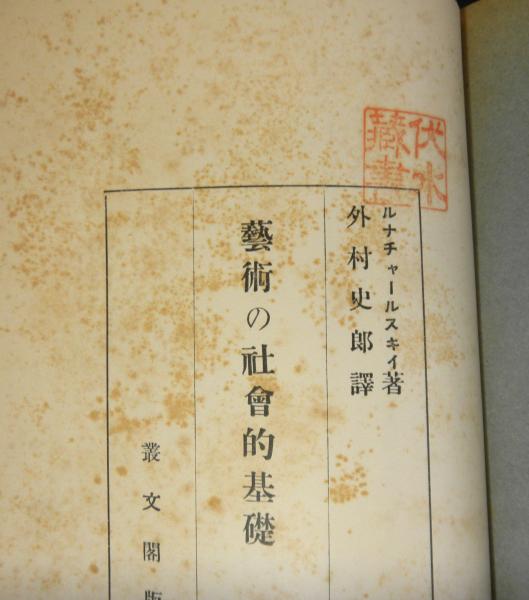 伏水
藏書
ルナチャールスキイ著
外村史郎譯
藝術の社會的基礎
叢文閣版